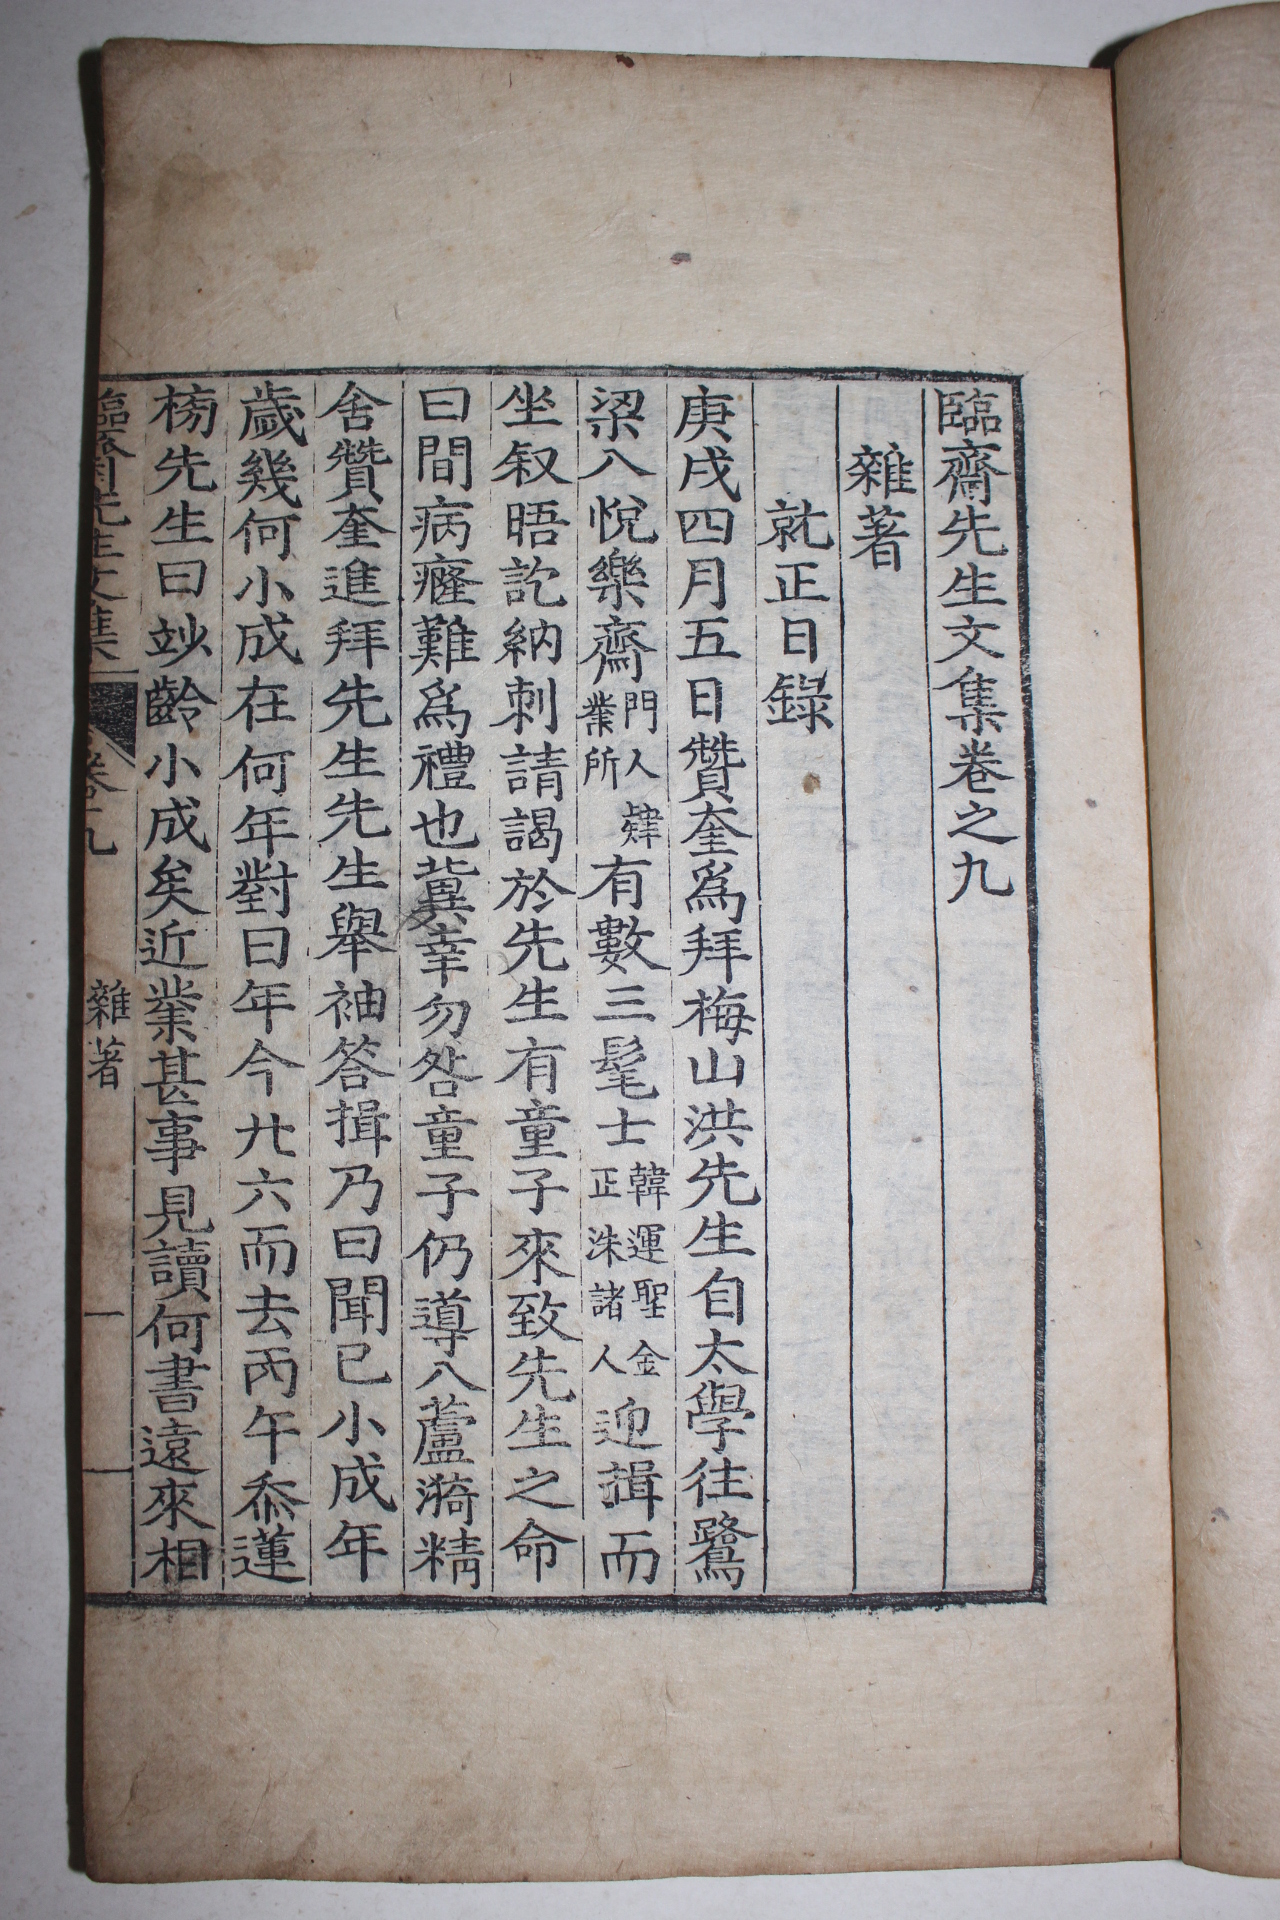 臨齋先生文集卷之九
雜著
就正日錄
庚戌四月五日贊奎爲拜梅山洪先生自太學往鷺
梁入悅樂齋門人肄業所有數三髦士韓運聖金正洙諸人迎揖而
坐叙晤訖納刺請謁於先生有童子來致先生之命
曰間病癃難爲禮也冀幸勿咎童子仍導入蘆漪精
舍贊奎進拜先生先生舉袖答揖乃曰聞已小成年
歲幾何小成在何年對曰年今廿六而去丙午忝蓮
榜先生曰玅齡小成矣近業甚事見讀何書遠來相
臨齋先生文集 卷之九 雜著 一